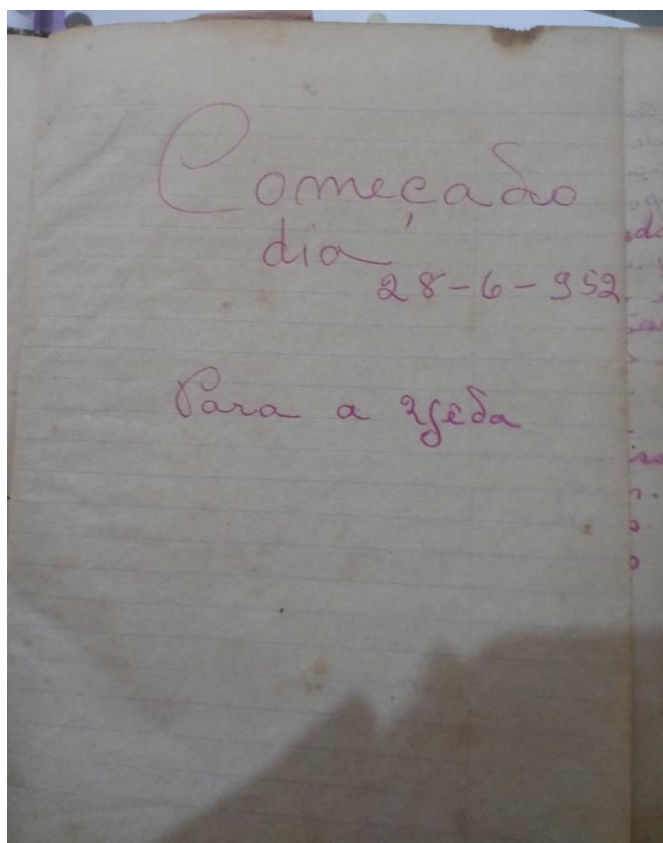 Começado
dia
28-6-952
Para a